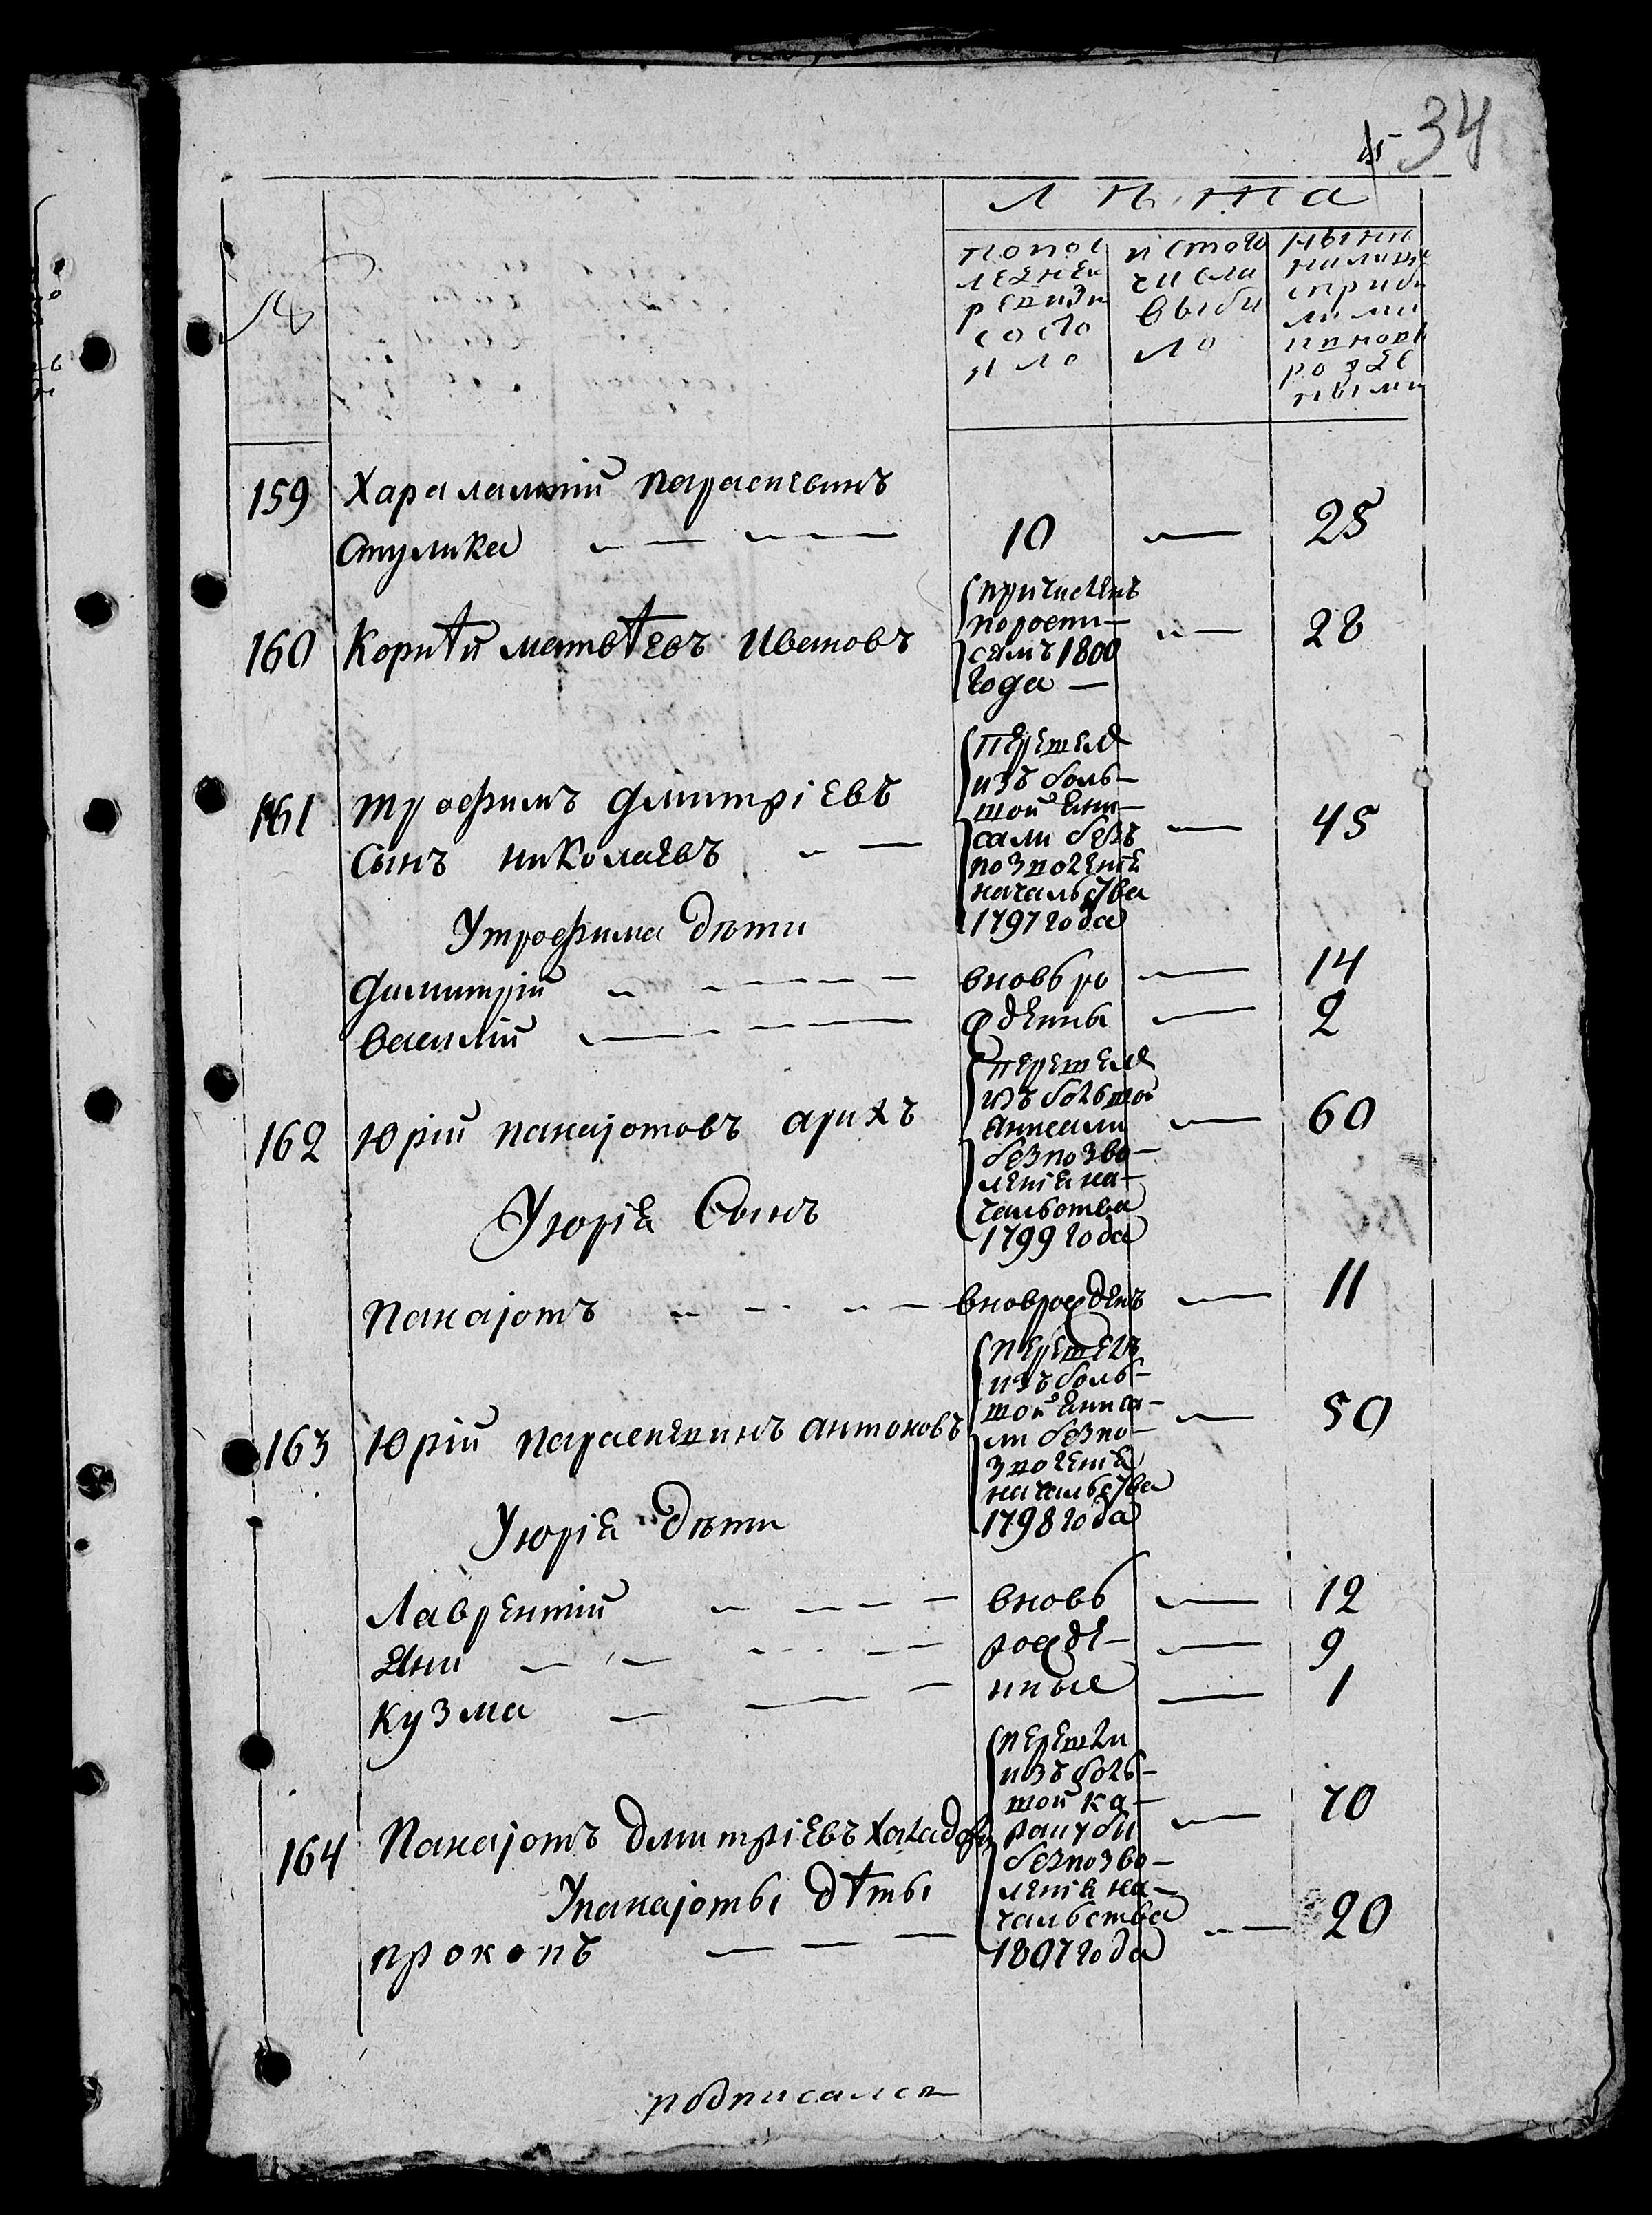 34
лѣта
№
попос
леднеи
ревизи
состо
яло
истого
числа
выбы
ло
нынѣ
налицо
сприбы
лыми
иновь
рожде
ными
159 Харалампій параскевинъ
стулика 10 — 25
160 Корнѣй матвѣевъ ивановъ
причисленъ
пороспи-
самъ 1800
года —
28
161 трофимъ дмитріевъ
сынъ николаевъ
перешелъ
изъ боль-
шой Яни-
сали безъ
позволеніе
начальства
1797 года
45
Утрофима дѣти
димитрій вновь ро — 14
василій ждены — 2
162 Юрій панаjотовъ арихъ
перешелъ
изъ большой
Янисали
безпозво-
леніе на-
чальства
1799 года
60
Уюрія Сынъ
панаjотъ вновьрожденъ — 11
163 Юрій параскевинъ антоновъ
перешелъ
изъ боль-
шой Яниса-
ли безпо-
зволеніе
начальства
1798 года
50
Уюрія дѣти
Лаврентій вновь — 12
Яни рожде- — 9
кузма нные — 1
164 Панаjотъ дмитріевъ
перешли
изъ боль-
шой ка-
ракубы
безпозво-
леніе на-
чальства
1807 года
70
Упанаjоты дѣты
прокопъ 20
подписался